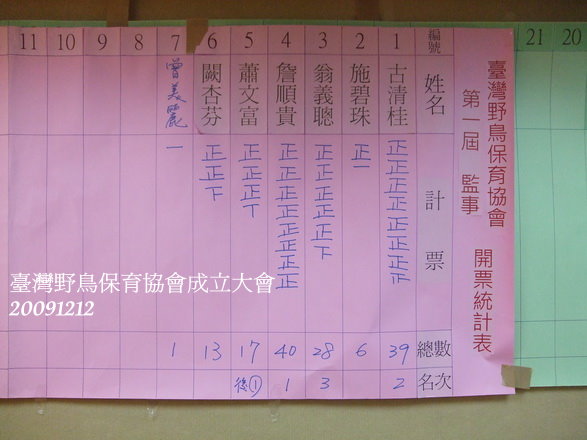 21 20
臺灣野鳥保育協會
第一屆 監事 開票統計表
編號 姓名 計票 總數 名次
1 古清桂 正正正正正正正正 39 2
2 施碧珠 正一 6
3 翁義聰 正正正正正下 28 3
4 詹順貴 正正正正正正正正 40 1
5 蕭文富 正正正丅 17 後①
6 闕杏芬 正正下 13
7 曾美麗 一 1
8
9
10
11
臺灣野鳥保育協會成立大會
20091212